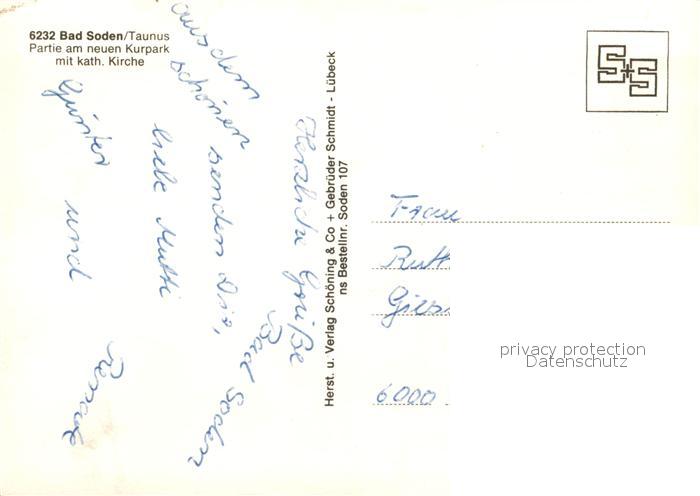 6232 Bad Soden/Taunus
Partie am neuen Kurpark
mit kath. Kirche
Herzliche Grüße
aus dem schönen Bad Soden
senden Dir,
liebe Mutti
Günter und Renate
Herst. u. Verlag Schöning & Co + Gebrüder Schmidt - Lübeck
ns Bestellnr. Soden 107
S+S
Frau
Ruth
6000
privacy protection
Datenschutz